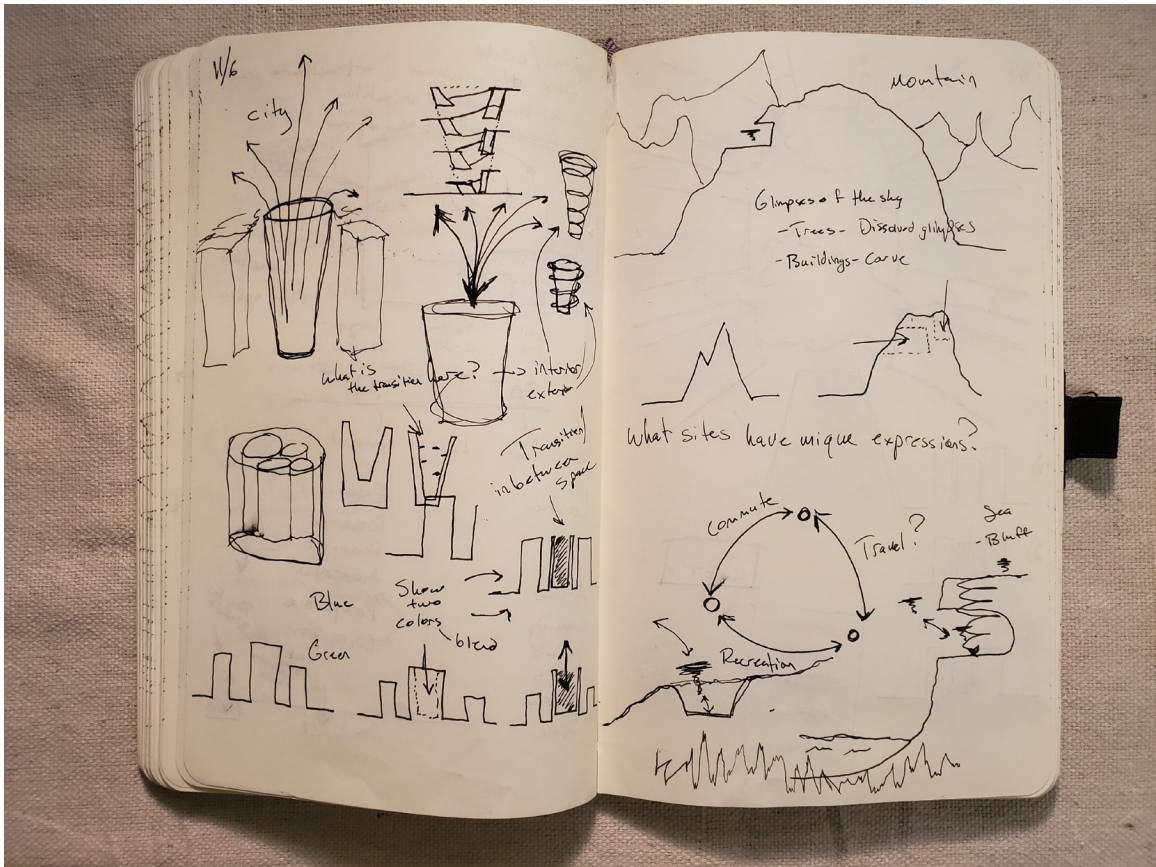 11/6
city
What is
the transition here? → interior
exterior
Transition/
inbetween
space
Show
two
colors
blend
Blue
Green
Mountain
Glimpses of the sky
-Trees- Dissolved glimpses
-Buildings- Carve
What sites have unique expressions?
Commute
Travel?
Recreation
Sea
-Bluff